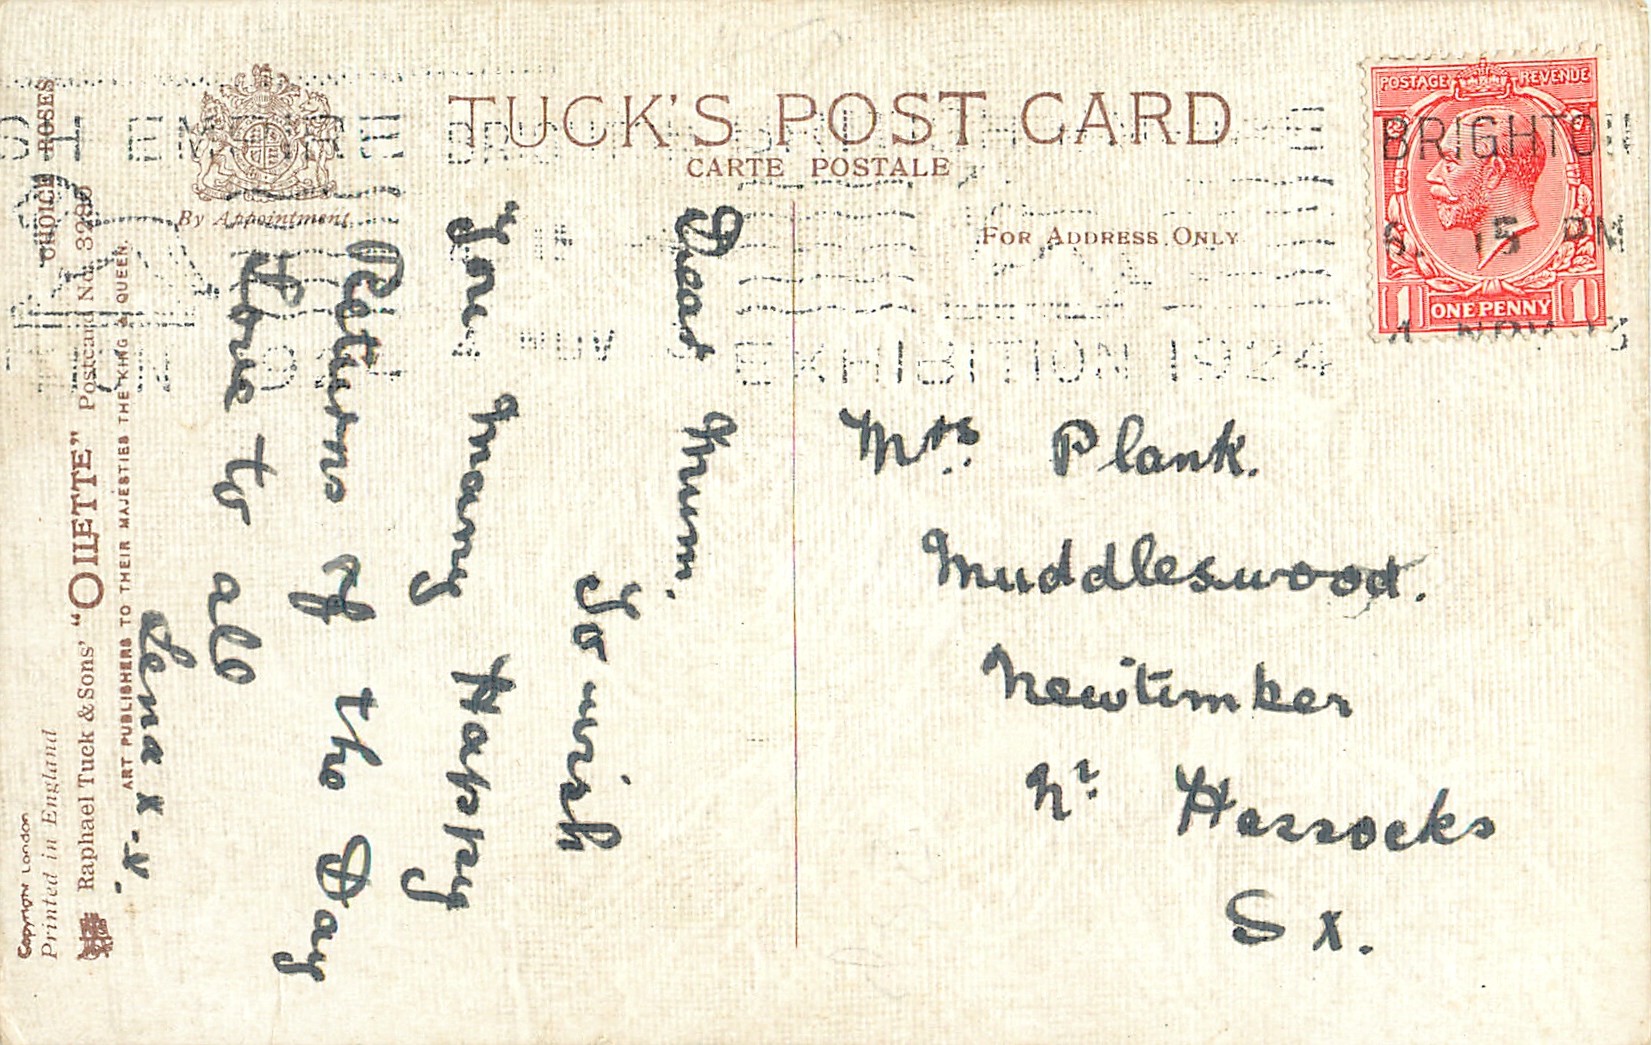 TUCK'S POST CARD
CARTE POSTALE
By Appointment
FOR ADDRESS ONLY
POSTAGE REVENUE
ONE PENNY
1 1
BRIGHTON
6. 15 PM
NOV
EXHIBITION 1924
Dear Mum.
To wish
You Many Happy
Returns of the Day
Love to all
Lena x.x.
Mrs Plank.
Muddleswood.
Newtimber
Nr Hassocks
Sx.
CHOICE ROSES
Raphael Tuck & Sons' "OILETTE" Postcard No. 3290
ART PUBLISHERS TO THEIR MAJESTIES THE KING & QUEEN.
Printed in England
Copyright London